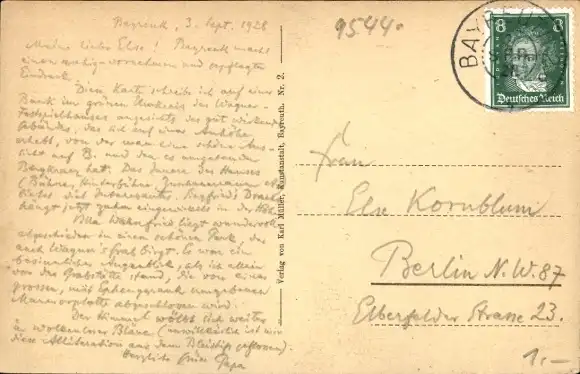 Bayreuth, 3. Sept. 1928
Meine liebe Else! Bayreuth macht
einen ruhig-vornehmen und gepflegten
Eindruck.
Diese Karte schreibe ich auf einer
Bank im grünen Umkreis des Wagner-
Festspielhauses angesichts des gut wirkenden
Gebäudes, das sich auf einer Anhöhe
erhebt, von der man eine schöne Aus-
sicht auf B. und den es umgebenden
Bergkranz hat. Das Innere des Hauses
(Bühne, Hinterbühne, Zuschauerraum
bietet viel Interessantes. Siegfrieds Drache
hängt jetzt zahm eingewiesen in der Höh
Villa Wahnfried liegt wundervoll
abgeschieden in einem schönen Park, der
auch Wagner's Grab birgt. Es war ein
besinnlicher Augenblick, als ich allein
vor der Grabstätte stand, die von einer
grossen, mit Epheu umgebenen
Marmorplatte abgeschlossen wird.
Der Himmel wölbt sich weiter
in wolkenloser Bläue (unwillkürlich ist mir
diese Alliteration aus dem Bleistift geflossen).
Herzliche Grüsse Papa
Verlag von Karl Müller, Kunstanstalt, Bayreuth. Nr. 2.
9544
BAYREUTH
8 8
Deutsches Reich
Frau
Else Kornblum
Berlin N.W. 87
Elberfelder Strasse 23.
1.-